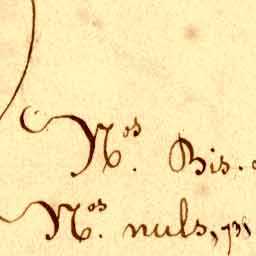 Nos. Bis.
Nos. nuls, 731